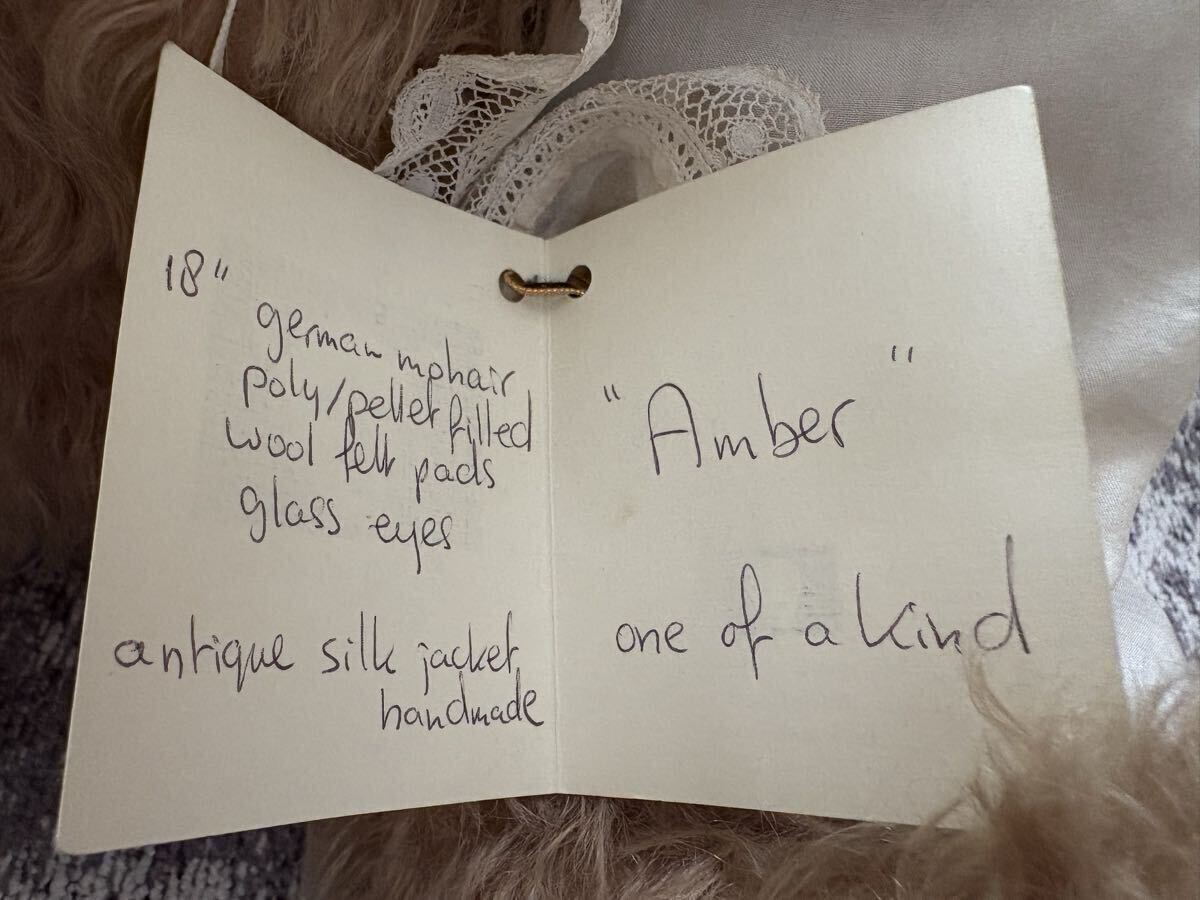 18"
german mohair
poly/pellet filled
wool felt pads
glass eyes
antique silk jacket,
handmade
"Amber"
one of a kind